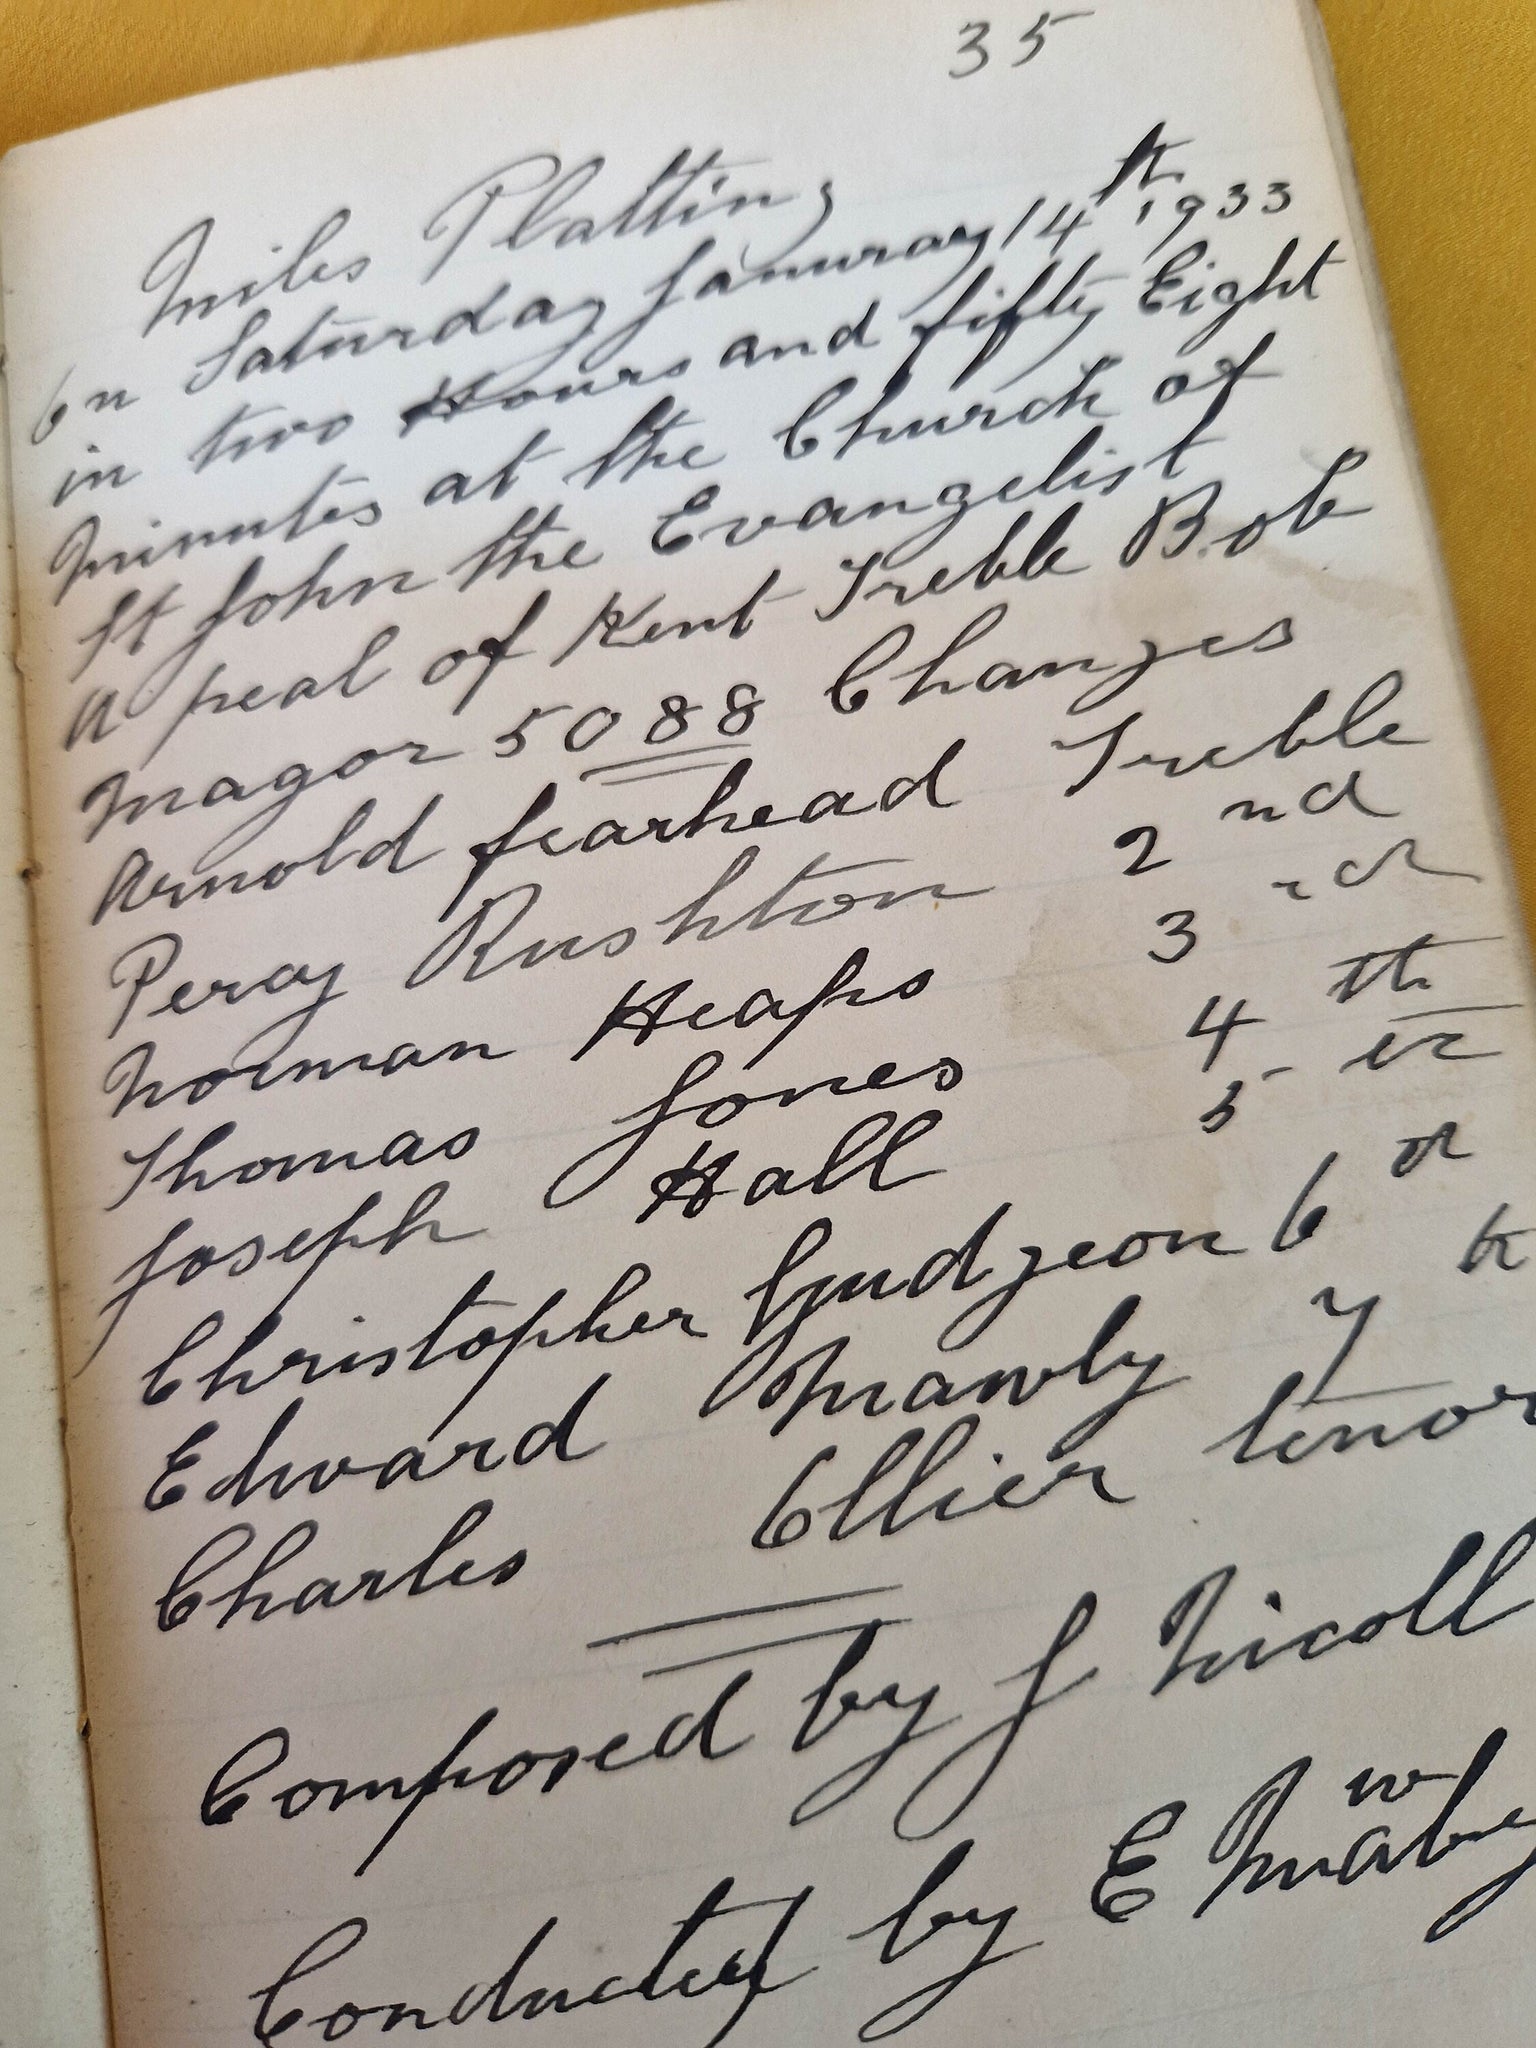 35
Miles Platting
On Saturday January 14th 1933
in two Hours and fifty Eight
minutes at the Church of
St John the Evangelist
A peal of Kent Treble Bob
Magor 5088 Changes
Arnold fearhead Treble
Percy Rushton 2nd
Norman Heaps 3rd
Thomas Jones 4th
Joseph Hall 5th
Christopher Gudgeon 6th
Edward Mawby 7th
Charles Ollier tenor
Composed by J Nicoll
Conducted by E Mawby